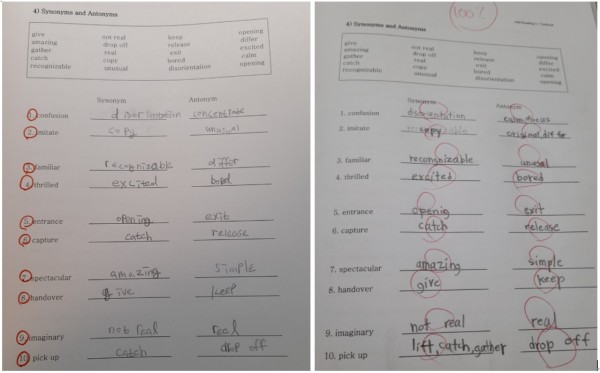 4) Synonyms and Antonyms
give not real keep opening
amazing drop off release differ
gather real exit excited
catch copy bored calm
recognizable unusual disorientation opening
Synonym Antonym
1. confusion disorientation concentrate
2. imitate copy unusual
3. familiar recognizable differ
4. thrilled excited bored
5. entrance opening exit
6. capture catch release
7. spectacular amazing simple
8. handover give keep
9. imaginary not real real
10. pick up catch drop off
100%
4) Synonyms and Antonyms
give not real keep opening
amazing drop off release differ
gather real exit excited
catch copy bored calm
recognizable unusual disorientation opening
Synonym Antonym
1. confusion disorientation calm, focus
2. imitate copy original, differ
3. familiar recongnizable unusal
4. thrilled excited bored
5. entrance openig exit
6. capture catch release
7. spectacular amazing simple
8. handover give keep
9. imaginary not real real
10. pick up lift, catch, gather drop off